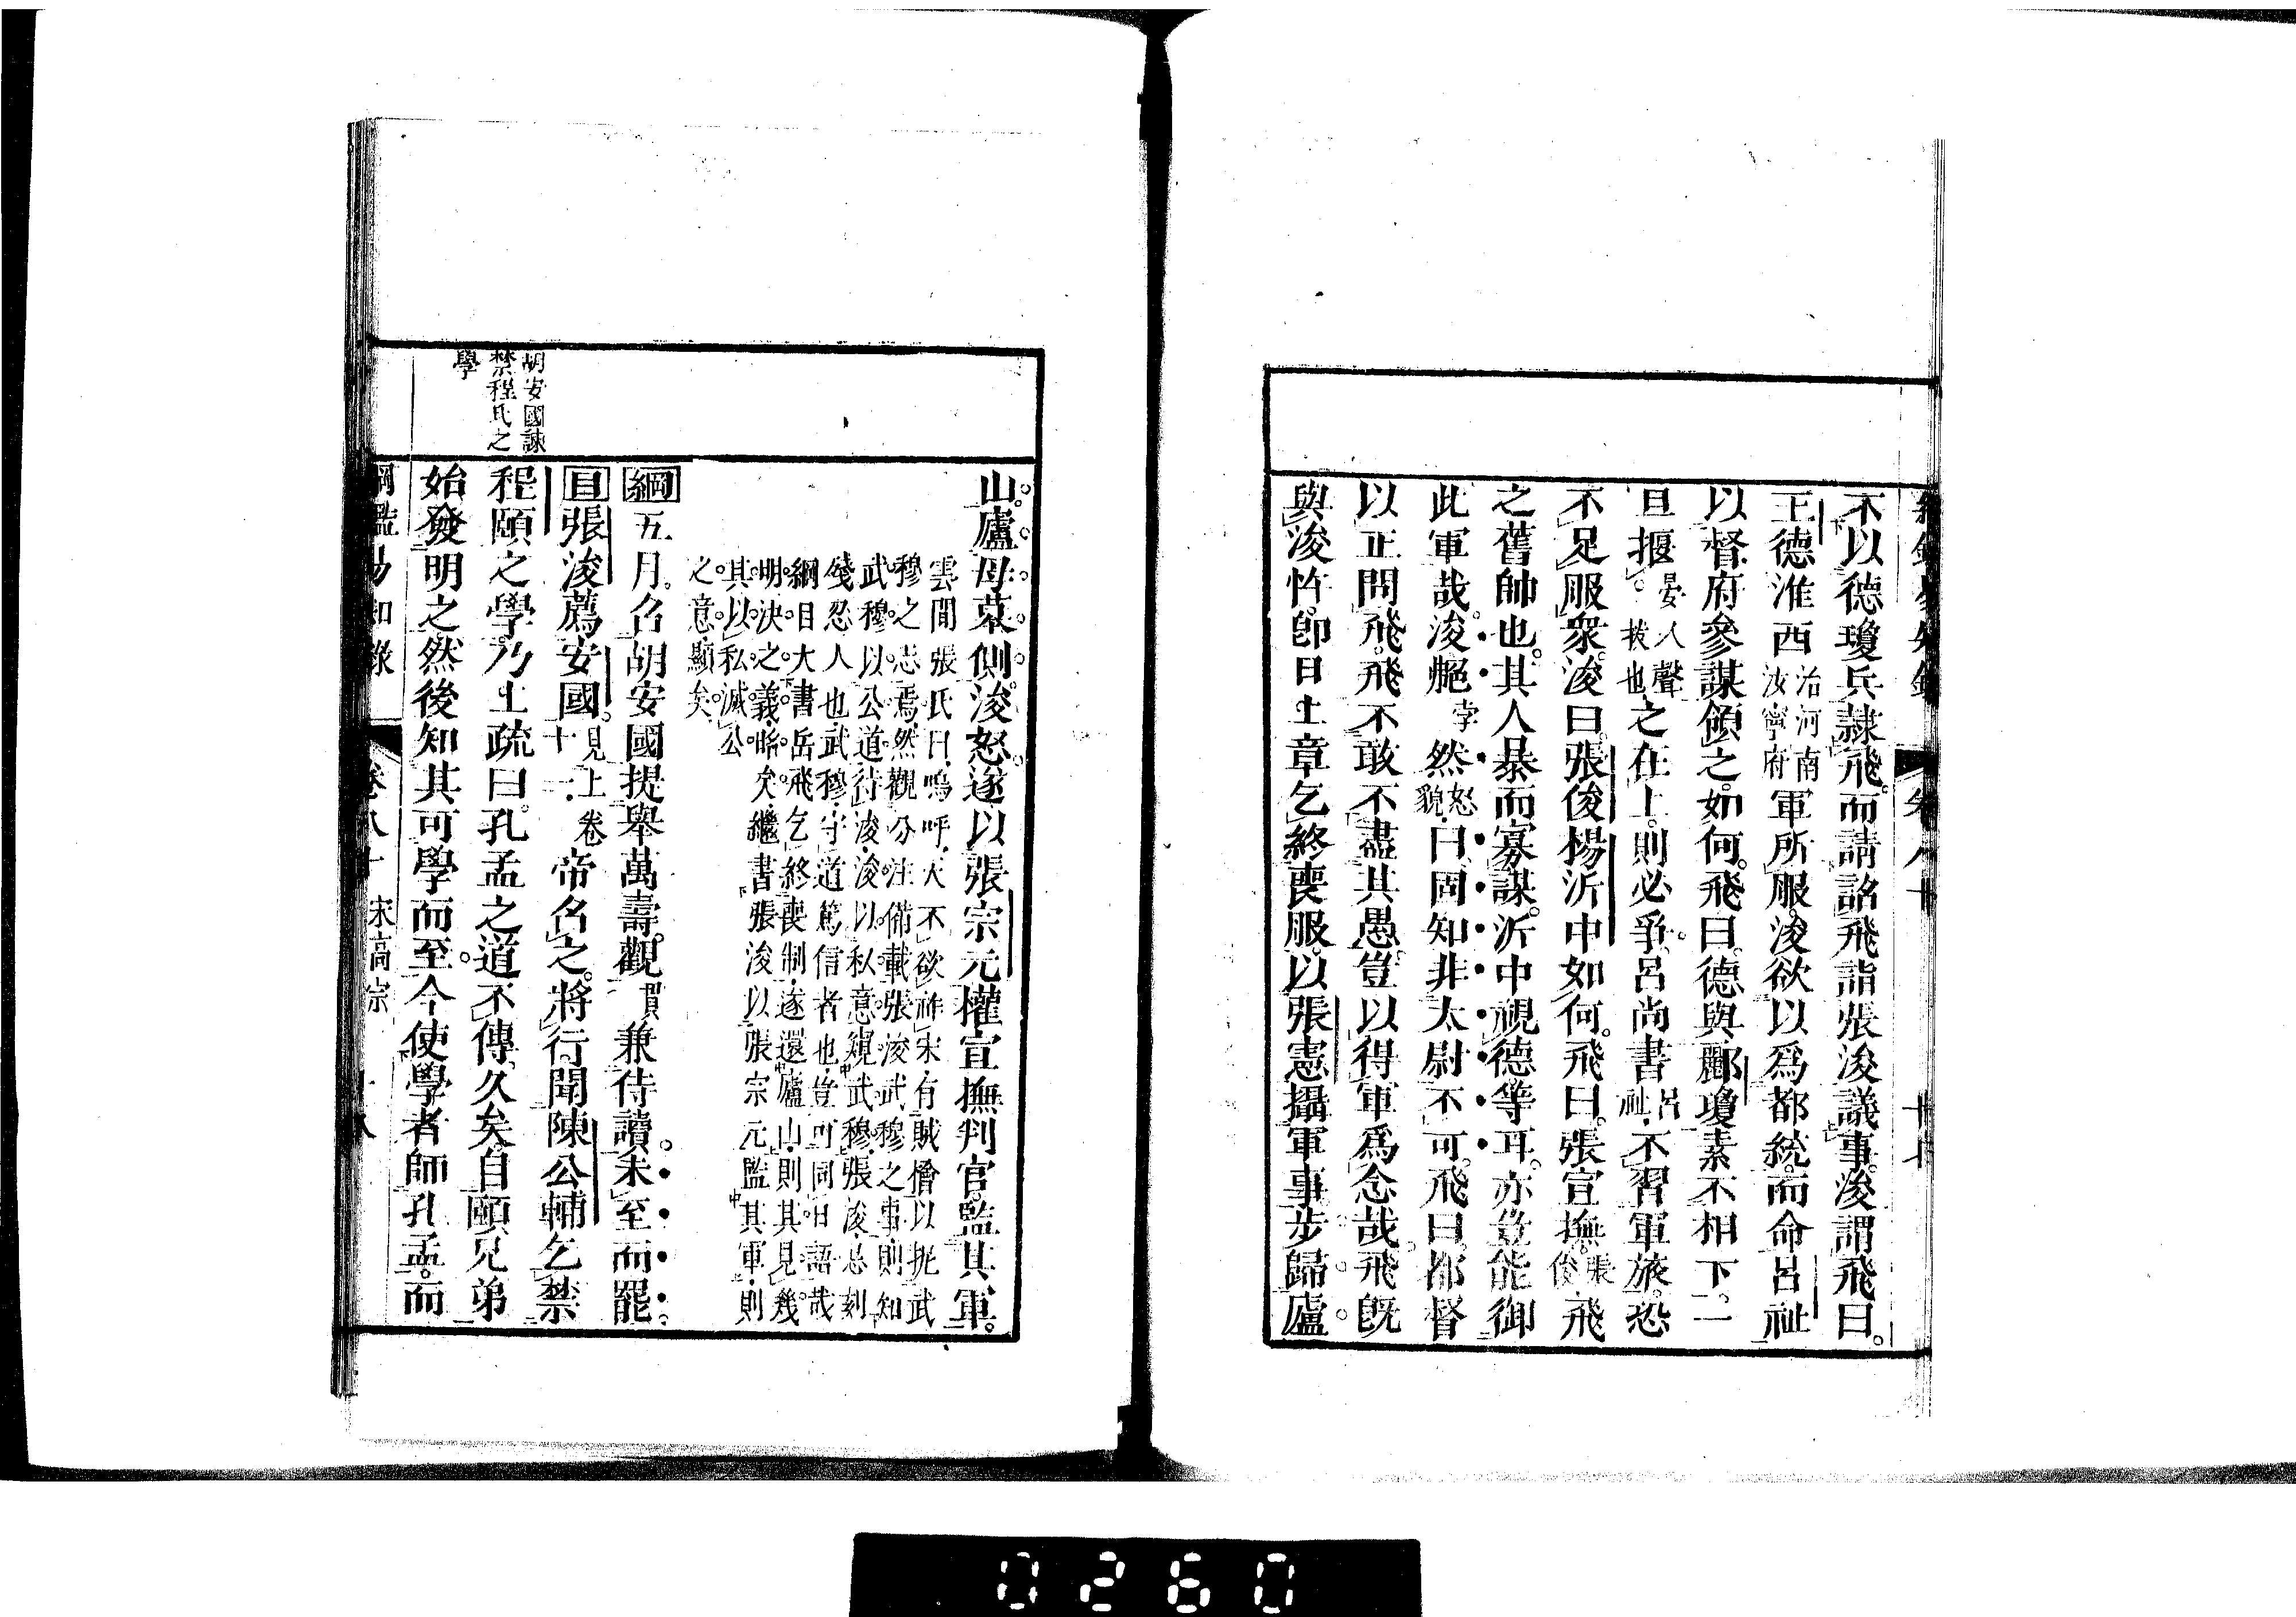 不以德瓊兵隸飛。而請詔飛詣張浚議事。浚謂飛曰。
王德淮西治河南汝寧府軍所服。浚欲以爲都統。而命呂祉
以督府參謀領之。如何。飛曰。德與酈瓊素不相下。一
旦揠晏入聲拔也之在上。則必爭。呂尚書呂祉不習軍旅。恐
不足服衆。浚曰。張俊楊沂中如何。飛曰。張宣撫張俊飛
之舊帥也。其人暴而寡謀。沂中視德等耳。亦豈能御
此軍哉。浚艴孛然怒貌曰。固知非太尉不可。飛曰。都督
以正問飛。飛不敢不盡其愚。豈以得軍爲念哉。飛既
與浚忤。卽日上章乞終喪服。以張憲攝軍事。步歸廬
山。廬母墓側。浚怒。遂以張宗元權宣撫判官。監其軍。
雲間張氏曰。嗚呼。天不欲祚宋。有賊檜以扼武
穆之志焉。然觀分注備載張浚武穆之事。則知
武穆以公道待浚。浚以私意窺武穆。張浚忌刻
殘忍人也。武穆守道篤信者也。豈可同日語哉
綱目大書岳飛乞終喪制。遂還廬山。則其見幾
明決之義昭矣。繼書張浚以張宗元監其軍。則
其以私滅公
之意顯矣。
綱五月。召胡安國提舉萬壽觀貫兼侍讀。未至而罷。
目張浚薦安國。見上卷十一帝召之。將行。聞陳公輔乞禁
程頤之學。乃上疏曰。孔孟之道不傳久矣。自頤兄弟
始發明之。然後知其可學而至。今使學者師孔孟。而
胡安國諫
禁程氏之
學
綱鑑易知錄 卷八十 宋高宗